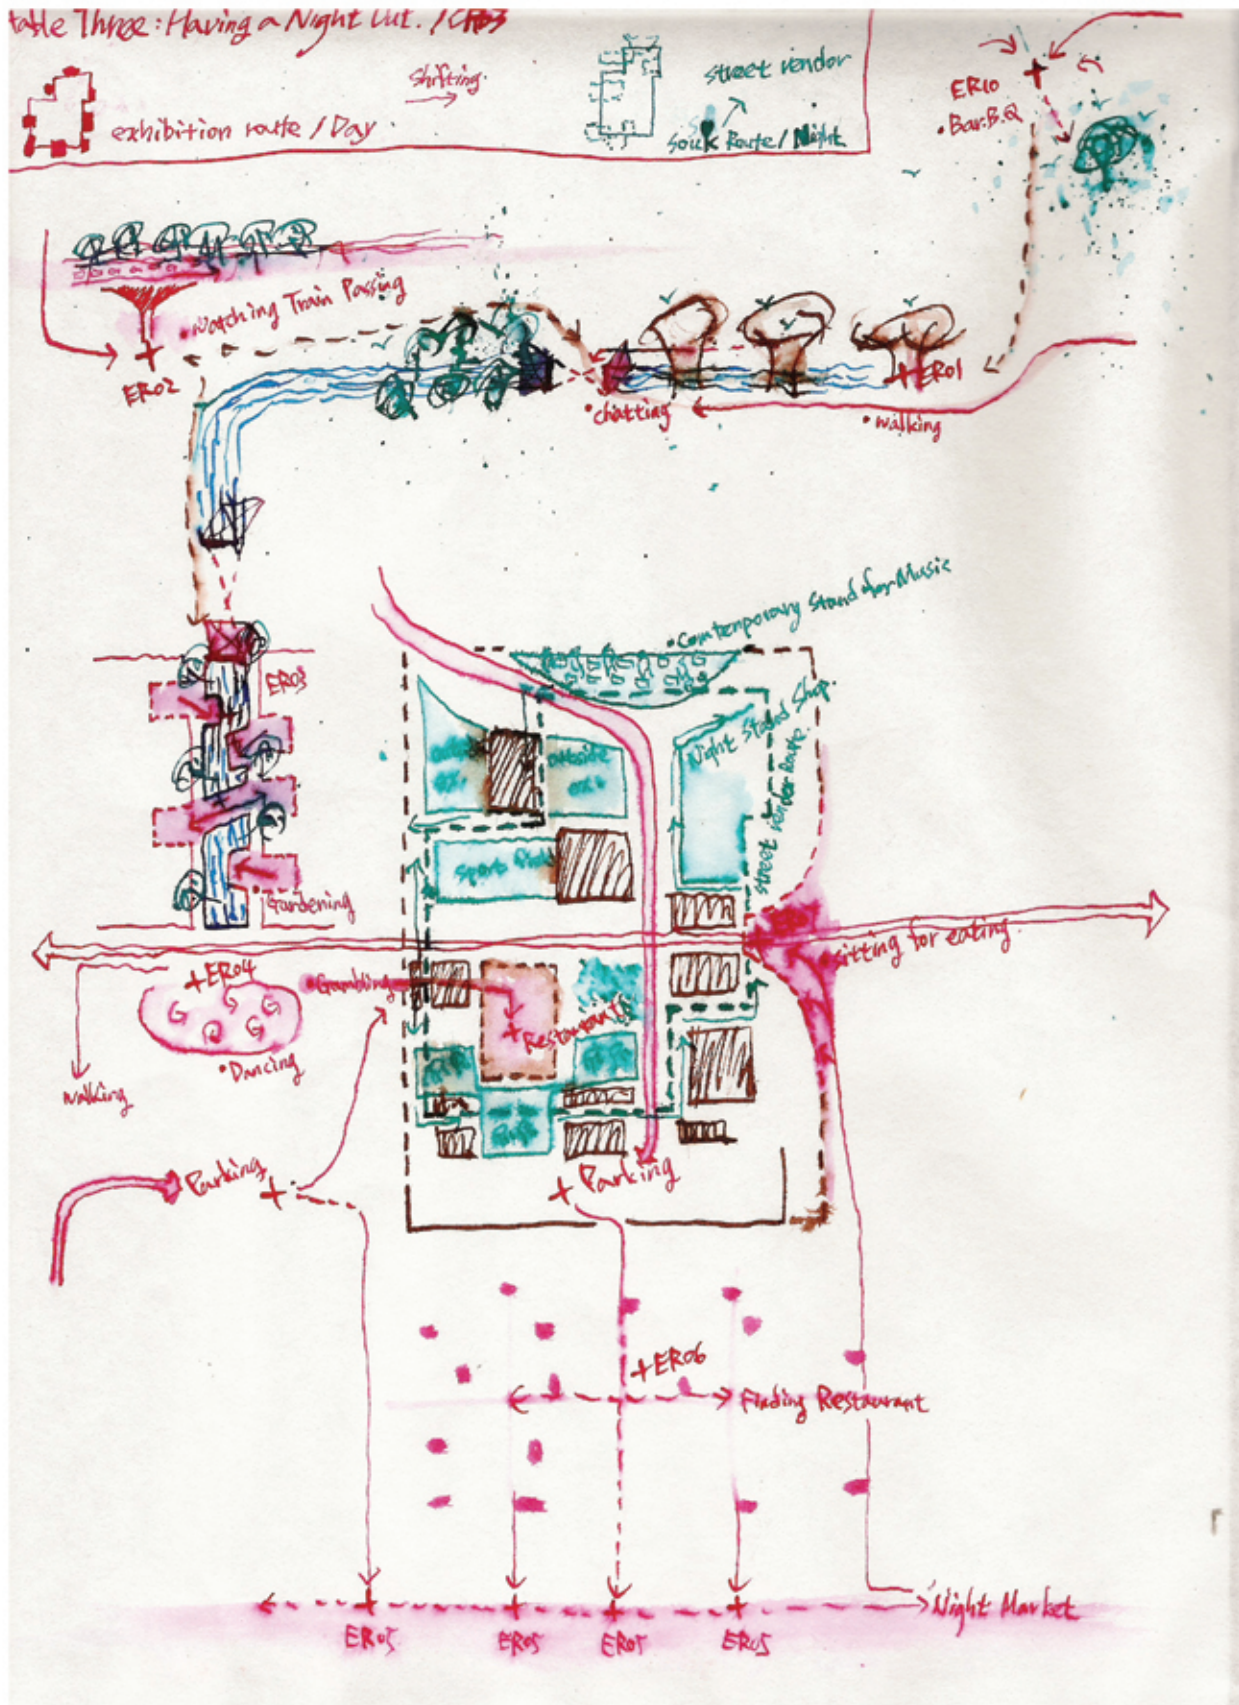 table Three: Having a Night Out. / CR03
exhibition route / Day
Shifting
street vendor
souk Route / Night
ER10
•Bar.B.Q
•Watching Train Passing
ER02
•chatting
ER01
•walking
•Comtemporary Stand for Music
ER03
Night Stand Shop.
outside
street vendor Route.
sport field
•Gardening
•sitting for eating.
+ER04
•Gambling
+Restaurant
•Dancing
walking
Parking
+
+ Parking
+ER06
Finding Restaurant
Night Market
ER05
ER05
ER05
ER05